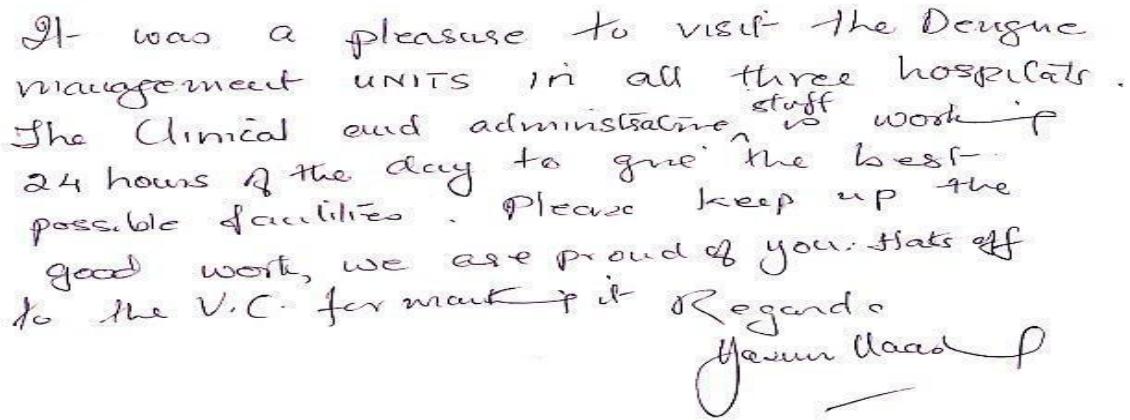 It was a pleasure to visit the Dengue
management UNITS in all three hospitals.
The Clinical and administrative ^ staff is working
24 hours of the day to give the best
possible facilities. Please keep up the
good work, we are proud of you. Hats off
to the V.C. for it Regards